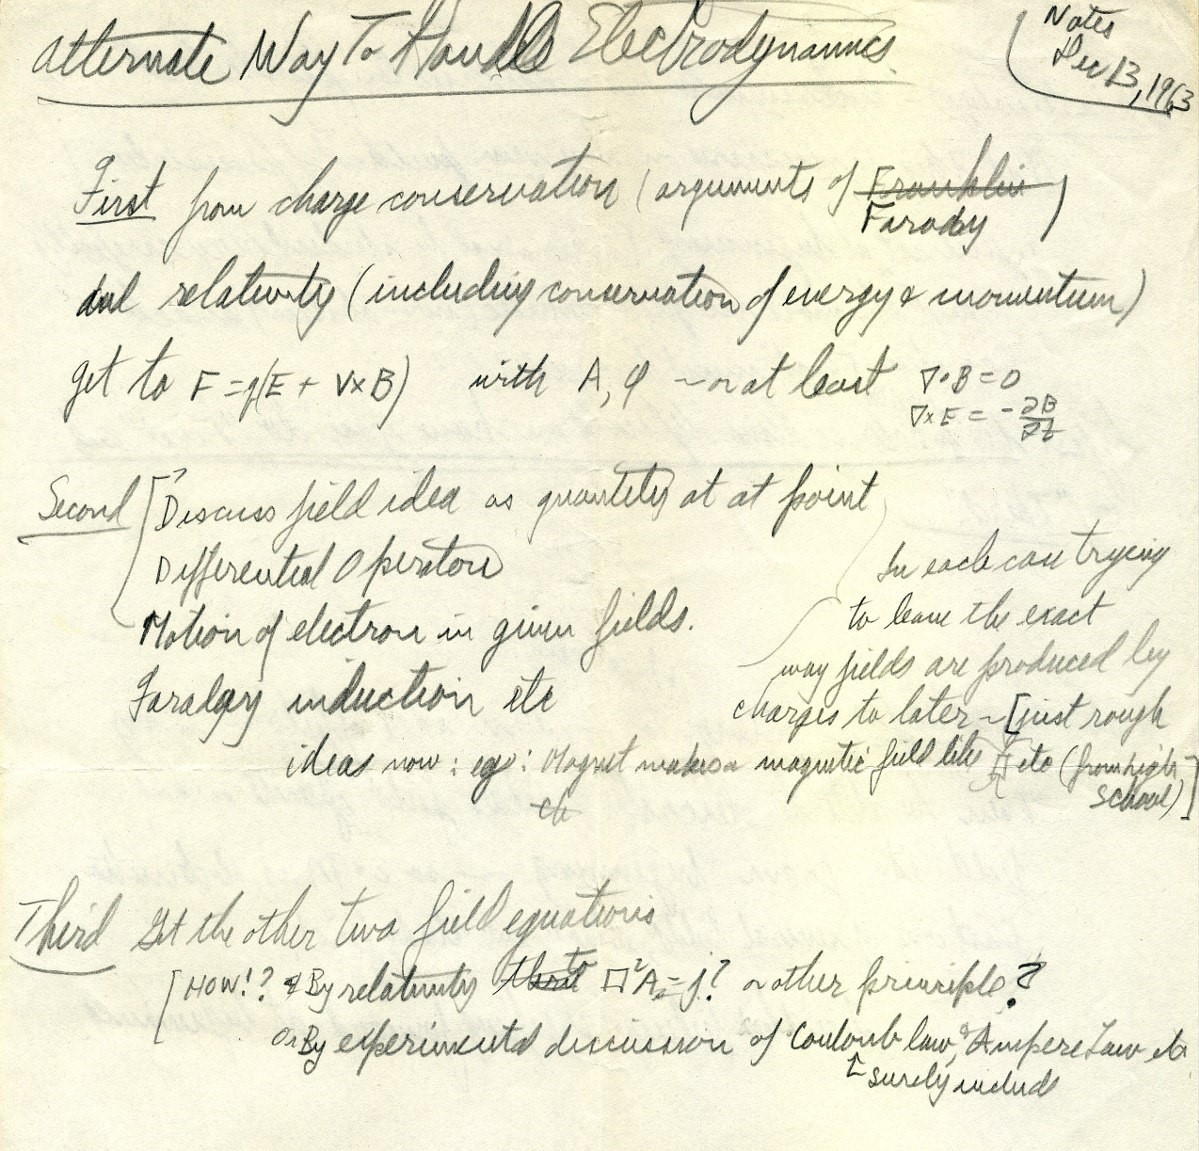 Alternate Way To Handle Electrodynamics.
Notes
Dec 13, 1963
First from charge conservation (arguments of Franklin Farady)
and relativity (including conservation of energy & momentum)
get to F = q(E + V×B) with A, φ – or at least ∇•B = 0
∇×E = -∂B/∂t
Second [? Discuss field idea as quantity at at point
Differential Operators
Motion of electron in given fields.
Faraday induction etc
In each case trying
to leave the exact
way fields are produced by
charges to later – [just rough
ideas now : eg : Magnet makes a magnetic field like etc (from high
school)]
Third Get the other two field equations
[HOW!? By relativity that to □²A = j? or other principle?
Or By experimental discussion of Coulomb law, & Ampere Law etc
↑ surely include